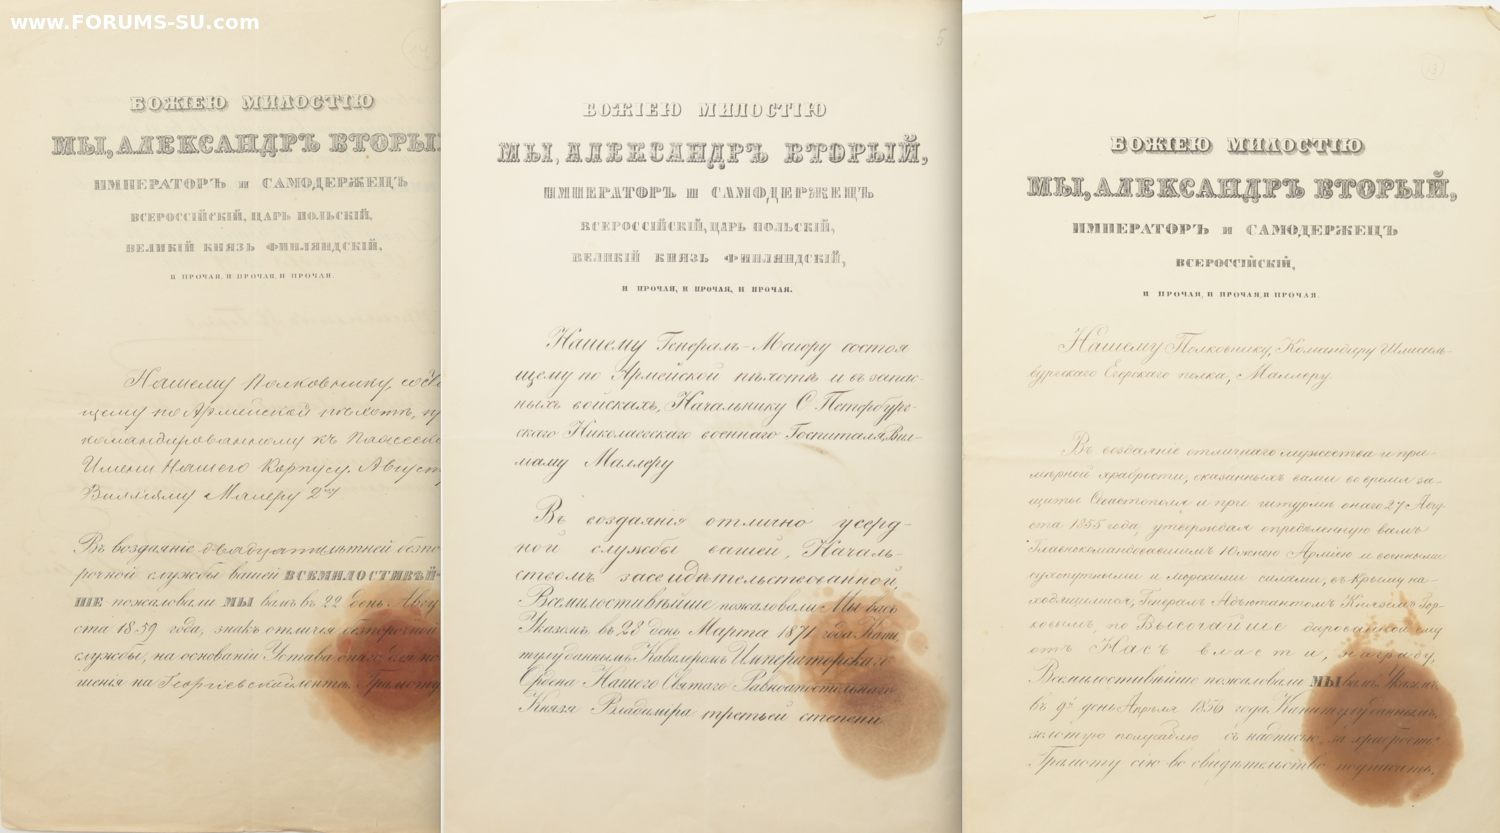 www.FORUMS-SU.com
БОЖІЕЮ МИЛОСТІЮ
МЫ, АЛЕКСАНДРЪ ВТОРЫЙ
ИМПЕРАТОРЪ и САМОДЕРЖЕЦЪ
ВСЕРОССІЙСКІЙ, ЦАРЬ ПОЛЬСКІЙ,
ВЕЛИКІЙ КНЯЗЬ ФИНЛЯНДСКІЙ,
И ПРОЧАЯ, И ПРОЧАЯ, И ПРОЧАЯ.
Нашему Полковнику, состо
щему по Армейской пѣхотѣ, пр
командированному къ
Имени Нашего Корпусу, Август
Виллiяму Маллеру 2му
Въ воздаяніе двадцатилѣтней безпо
рочной службы вашей ВСЕМИЛОСТИВѢЙ-
ШЕ пожаловали МЫ вамъ въ 22 день Авгу
ста 1859 года, знакъ отличія безпорочной
службы, на основаніи Устава
шенія на Георгіевской лентѣ. Грамоту
5
БОЖІЕЮ МИЛОСТІЮ
МЫ, АЛЕКСАНДРЪ ВТОРЫЙ,
ИМПЕРАТОРЪ и САМОДЕРЖЕЦЪ
ВСЕРОССІЙСКІЙ, ЦАРЬ ПОЛЬСКІЙ,
ВЕЛИКІЙ КНЯЗЬ ФИНЛЯНДСКІЙ,
И ПРОЧАЯ, И ПРОЧАЯ, И ПРОЧАЯ.
Нашему Генералъ-Маіору состоя
щему по Армейской пѣхотѣ и въ запас-
ныхъ войскахъ, Начальнику С. Петербург-
скаго Николаевскаго военнаго Госпиталя, Вил-
лиаму Маллеру
Въ воздаяніи отлично усерд-
ной службы вашей, Началь-
ствомъ засвидѣтельствованной,
Всемилостивѣйше пожаловали Мы васъ
Указомъ въ 28 день Марта 1871 года Капи
тулу даннымъ, Кавалеромъ Императорскаго
Ордена Нашего Святаго Равноапостольнаго
Князя Владиміра третьей степени
БОЖІЕЮ МИЛОСТІЮ
МЫ, АЛЕКСАНДРЪ ВТОРЫЙ,
ИМПЕРАТОРЪ и САМОДЕРЖЕЦЪ
ВСЕРОССІЙСКІЙ,
И ПРОЧАЯ, И ПРОЧАЯ, И ПРОЧАЯ.
Нашему Полковнику, Командиру Шлиссель-
бургскаго Егерскаго полка, Маллеру
Въ воздаяніе отличнаго мужества и при-
мѣрной храбрости, оказанныхъ вами во время за-
щиты Севастополя и при штурмѣ онаго 27 Авгу-
ста 1855 года, утверждая опредѣленную вамъ
Главнокомандовавшимъ Южною Арміею и военными
сухопутными и морскими силами, въ Крыму на-
ходящимися, Генералъ Адъютантомъ Княземъ Гор-
ковымъ, по Высочайше дарованной ему
отъ Насъ власти, награду,
Всемилостивѣйше пожаловали МЫ вамъ Указомъ,
въ 9й день Апрѣля 1856 года Капитулу даннымъ,
золотую полусаблю съ надписью „за храбрость"
Грамоту сію во свидѣтельство подписать,